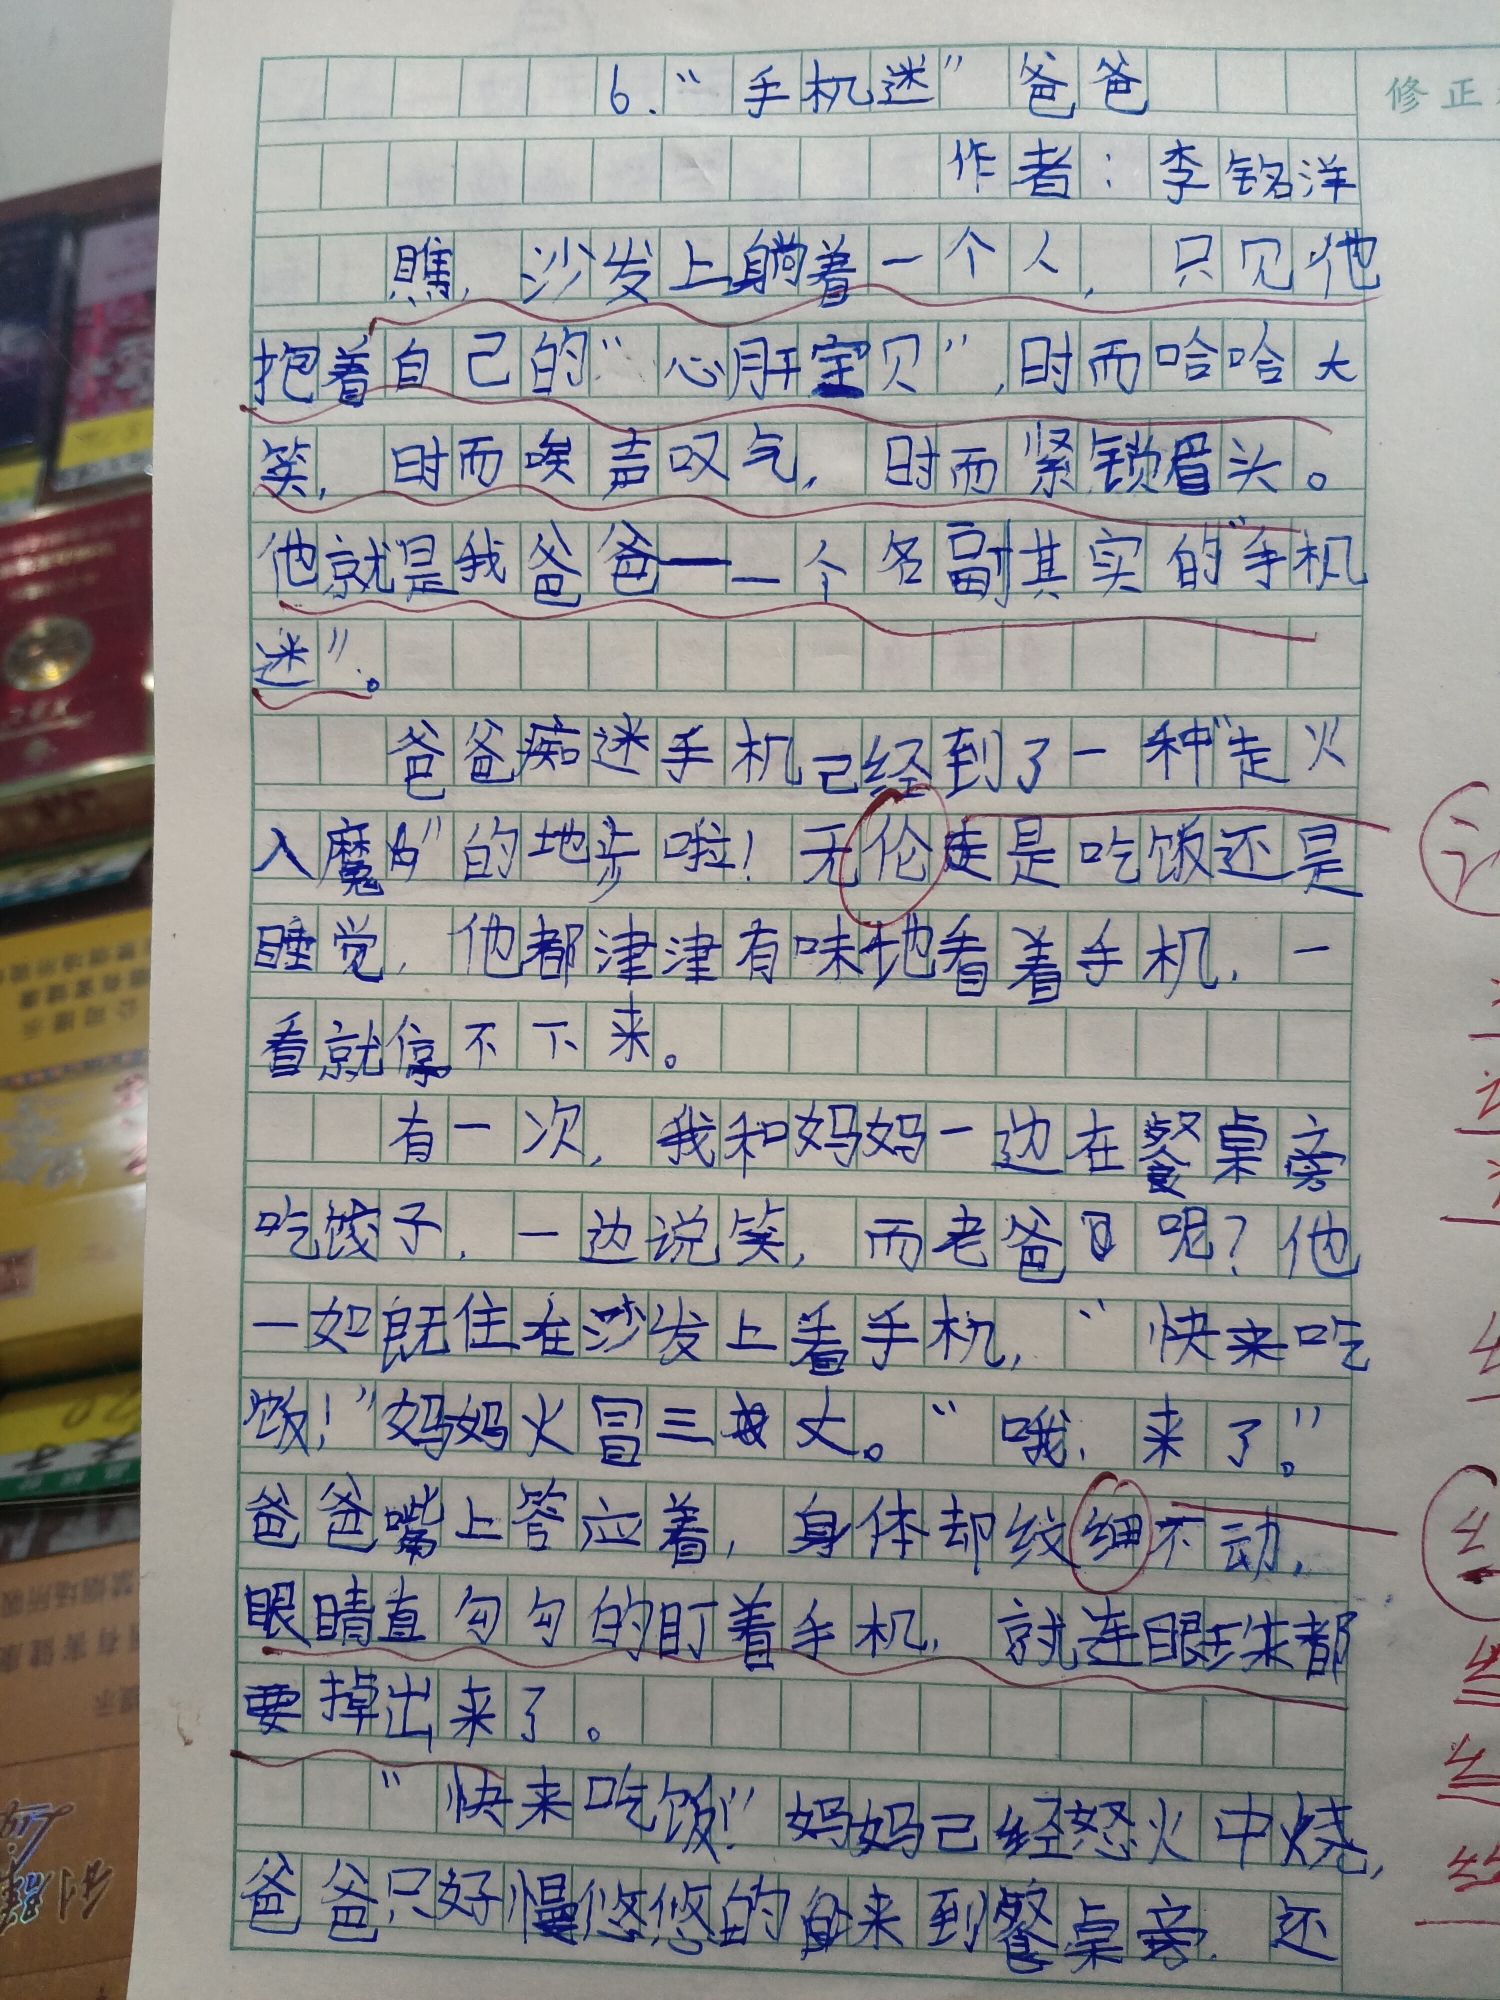 6.“手机迷”爸爸
修正
作者:李铭洋
瞧,沙发上躺着一个人,只见他
抱着自己的“心肝宝贝”,时而哈哈大
笑,时而唉声叹气,时而紧锁眉头。
他就是我爸爸——一个名副其实的“手机
迷”。
爸爸痴迷手机已经到了一种“走火
入魔”的地步啦!无伦是吃饭还是
睡觉,他都津津有味地看着手机,一
看就停不下来。
有一次,我和妈妈一边在餐桌旁
吃饺子,一边说笑,而老爸呢?他
一如既往在沙发上看手机,“快来吃
饭!”妈妈火冒三丈。“哦,来了。”
爸爸嘴上答应着,身体却纹细不动,
眼睛直勾勾的盯着手机,就连眼珠都
要掉出来了。
“快来吃饭!”妈妈已经怒火中烧,
爸爸只好慢悠悠的来到餐桌旁,还